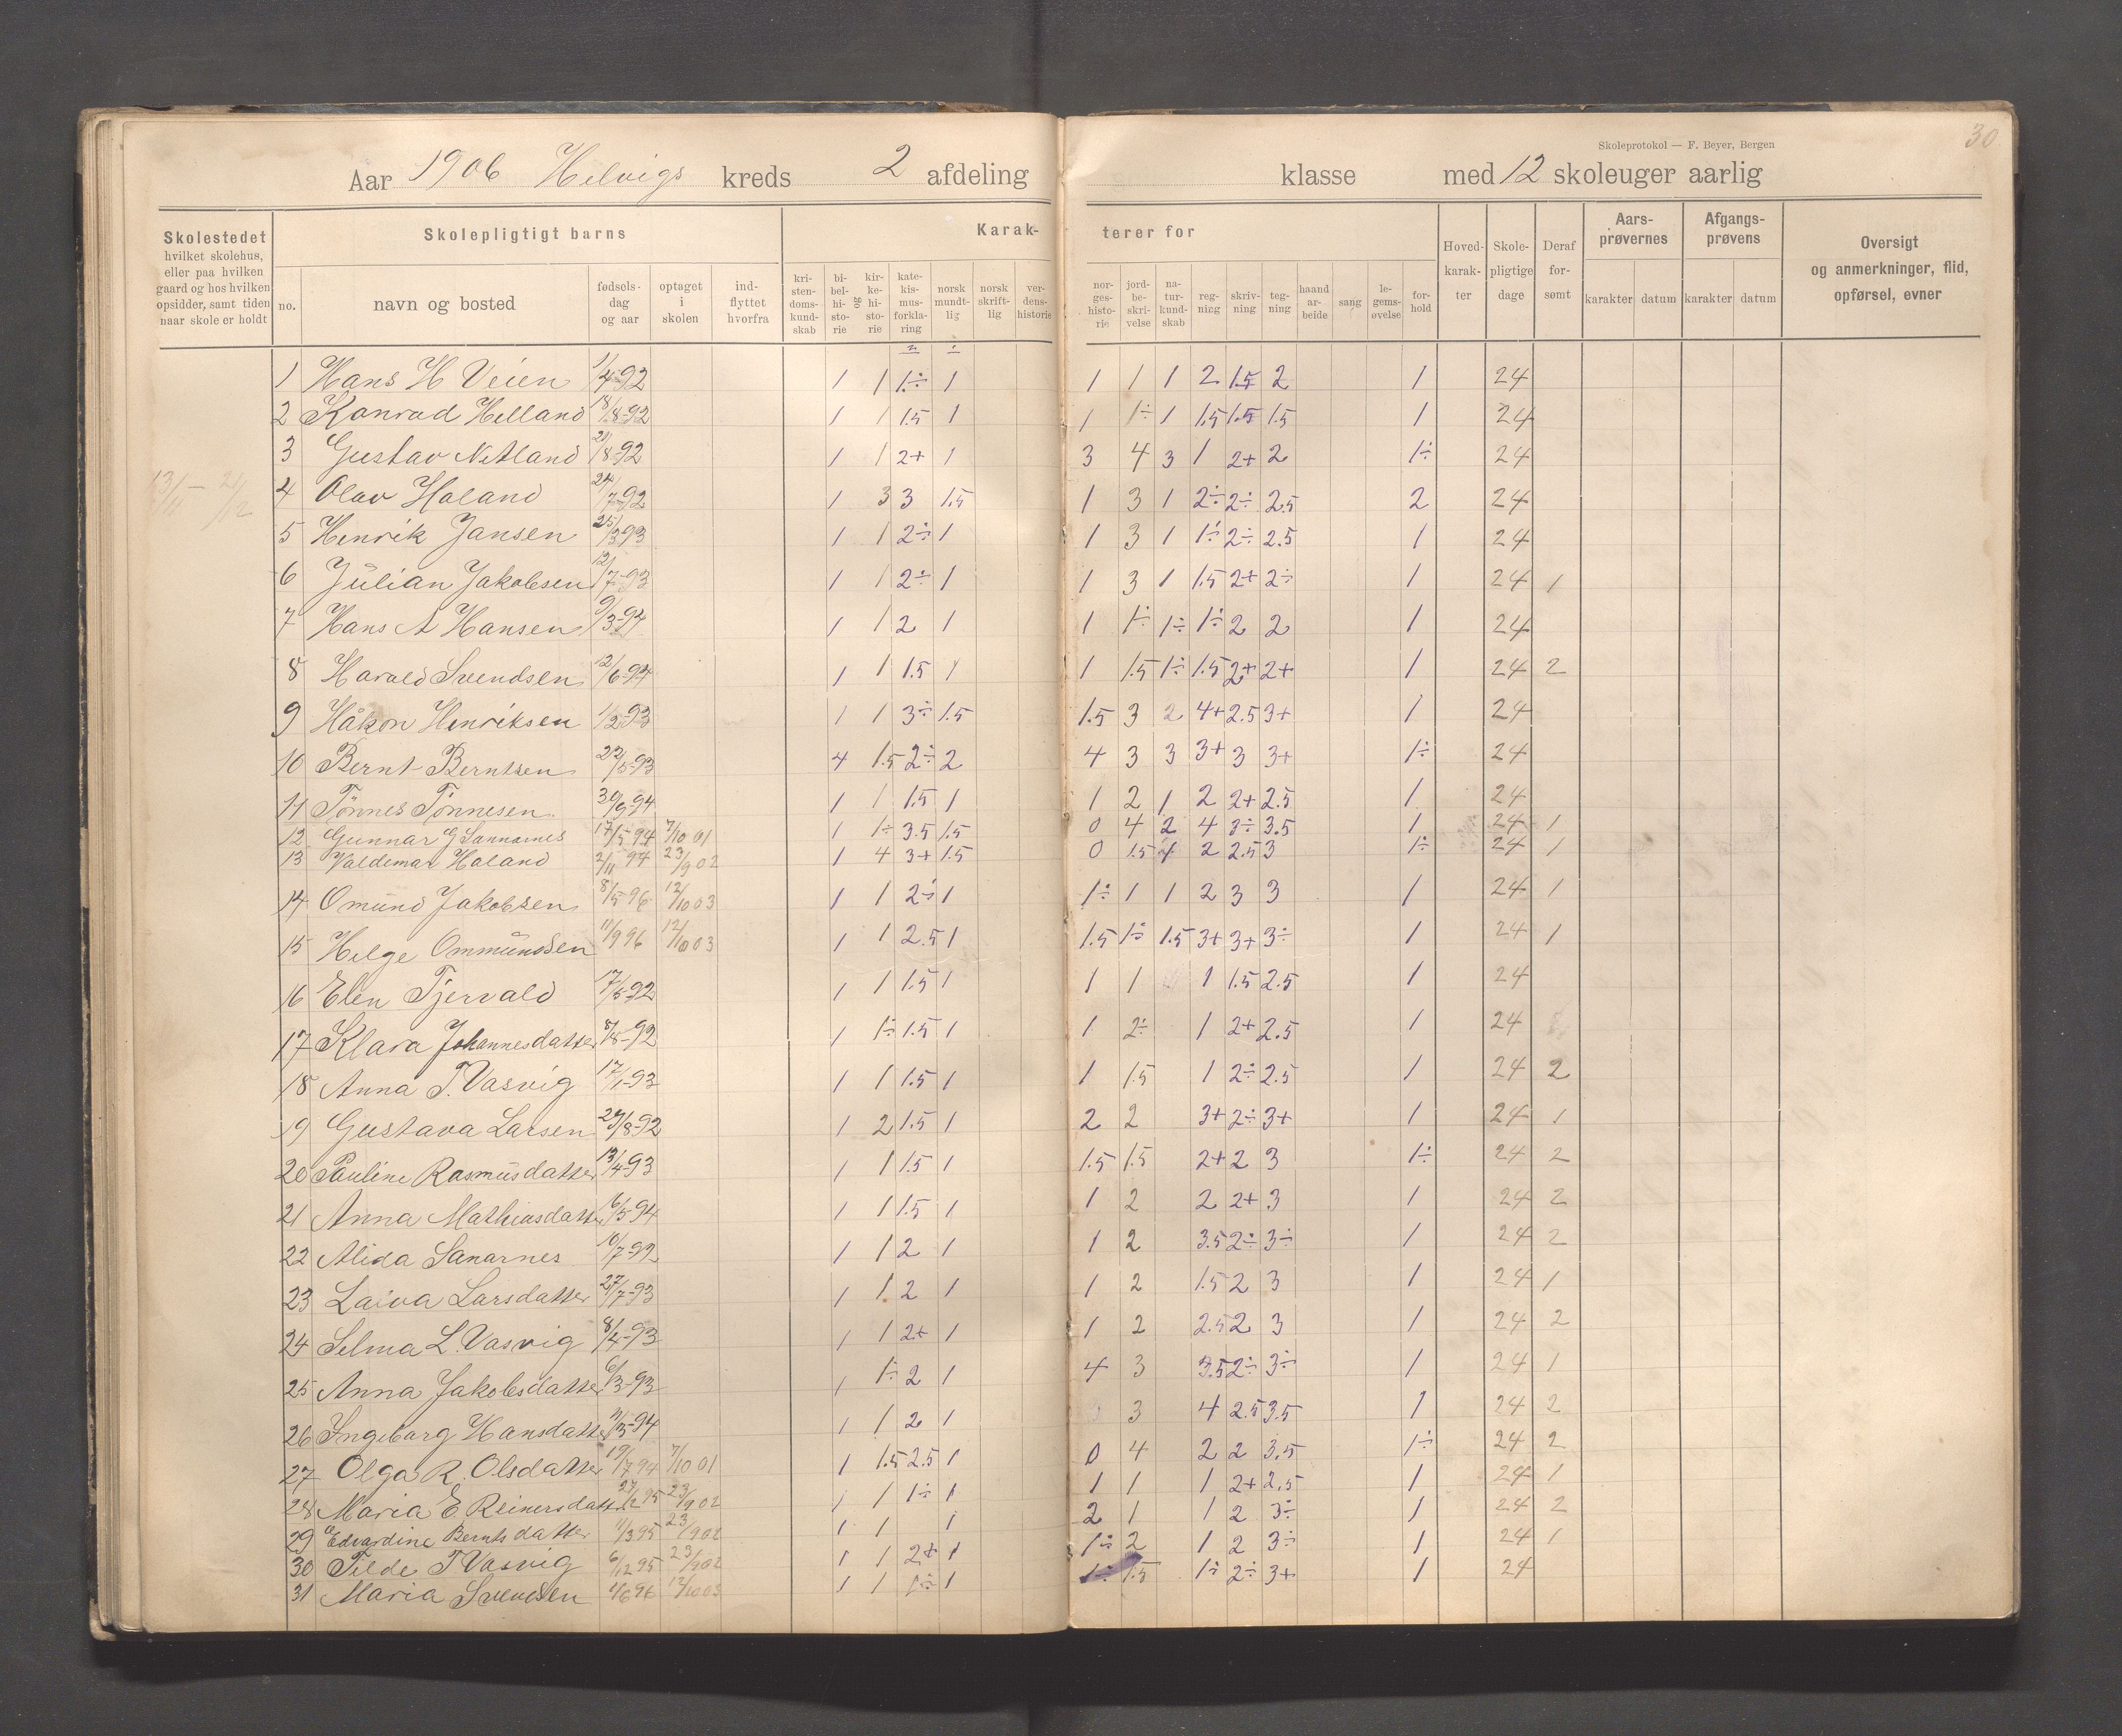 Skoleprotokol — F. Beyer, Bergen
30
Aar 1906 Helvigs kreds 2 afdeling klasse med 12 skoleuger aarlig
Skolestedet hvilket skolehus, eller paa hvilken gaard og hos hvilken opsidder, samt tiden naar skole er holdt
Skolepligtigt barns
Karakterer for
no. navn og bosted fødselsdag og aar optaget i skolen indflyttet hvorfra
kristendomskundskab bibelhistorie og kirkehistorie katekismusforklaring norsk mundtlig norsk skriftlig verdenshistorie
norgeshistorie jordbeskrivelse naturkundskab regning skrivning tegning haandarbeide sang legemsøvelse forhold
Hovedkarakter Skolepligtige dage Deraf forsømt
Aarsprøvernes karakter datum
Afgangsprøvens karakter datum
Oversigt og anmerkninger, flid, opførsel, evner
13/11 - 21/12
1 Hans H Veien 1/4-92 1 1 1÷ 1 1 1 1 2 1.5 2 1 24
2 Konrad Helland 18/8-92 1 1 1.5 1 1 1÷ 1 1.5 1.5 1.5 1 24
3 Gustav Netland 21/8-92 1 1 2+ 1 3 4 3 1 2+ 2 1÷ 24
4 Olav Haland 24/7-92 1 3 3 1.5 1 3 1 2÷ 2÷ 2.5 2 24
5 Henrik Jansen 25/3-93 1 1 2÷ 1 1 3 1 1÷ 2÷ 2.5 1 24
6 Julian Jakobsen 12/7-93 1 1 2÷ 1 1 3 1 1.5 2+ 2÷ 1 24 1
7 Hans A Hansen 9/3-94 1 1 2 1 1 1÷ 1÷ 1÷ 2 2 1 24
8 Harald Svendsen 12/6-94 1 1 1.5 1 1 1.5 1÷ 1.5 2+ 2+ 1 24 2
9 Håkon Henriksen 1/2-93 1 1 3÷ 1.5 1.5 3 2 4+ 2.5 3+ 1 24
10 Bernt Berntsen 23/5-93 4 1.5 2÷ 2 4 3 3 3+ 3 3+ 1÷ 24
11 Tönnes Tönnesen 30/9-94 1 1 1.5 1 1 2 1 2 2+ 2.5 1 24
12 Gunnar G Sannarnes 17/5 94 7/10 01 1 1÷ 3.5 1.5 0 4 2 4 3÷ 3.5 1 24 1
13 Valdemar Haland 2/11 94 23/9 02 1 4 3+ 1.5 0 1.5 1 2 2.5 3 1÷ 24 1
14 Omund Jakobsen 8/5-96 12/10 03 1 1 2÷ 1 1÷ 1 1 2 3 3 1 24 1
15 Helge Ommundsen 11/9 96 12/10 03 1 1 2.5 1 1.5 1÷ 1.5 3+ 3+ 3÷ 1 24 1
16 Elen Tjervald 17/5-92 1 1 1.5 1 1 1 1 1.5 2.5 1 24
17 Klara Johannesdatter 8/8-92 1 1÷ 1.5 1 1 2÷ 1 2+ 2.5 1 24
18 Anna T. Vasvig 17/1-93 1 1 1.5 1 1 1.5 1 2÷ 2.5 1 24 2
19 Gustava Larsen 29/8-92 1 2 1.5 1 2 2 3+ 2÷ 3+ 1 24 1
20 Pauline Rasmusdatter 13/4-93 1 1 1.5 1 1.5 1.5 2+ 2 3 1÷ 24 2
21 Anna Mathiasdatter 6/5-94 1 1 1.5 1 1 2 2 2+ 3 1 24 2
22 Alida Sanarnes 10/7-92 1 1 2 1 1 2 3.5 2÷ 3÷ 1 24 2
23 Laiva Larsdatter 27/7-93 1 1 2 1 1 2 1.5 2 3 1 24 1
24 Selma L. Vasvig 8/4-93 1 1 2+ 1 1 2 2.5 2 3 1 24 2
25 Anna Jakobsdatter 6/3-93 1 1÷ 2 1 4 3 3.5 2÷ 3÷ 1 24 1
26 Ingeborg Hansdatter 11/5-94 1 1 2 1 3 4 2.5 3.5 1 24 2
27 Olga R. Olsdatter 19/7 94 7/10 01 1 1.5 2.5 1 0 4 2 2 3.5 1÷ 24 2
28 Maria E Reinersdatter 27/2 95 23/9 02 1 1 1÷ 1 1 1 1 2+ 2.5 1 24 1
29 Edvardine Berntsdatter 11/3 95 23/9 02 1 1 1 2 1 1 2 3÷ 1 24 2
30 Tilde T Vasvig 6/12 95 23/9 02 1 1 2+ 1 1÷ 2 1 2 3÷ 1 24 1
31 Maria Svendsen 4/6 96 12/10 03 1 1 1÷ 1 1÷ 1.5 1÷ 2÷ 3+ 1 24